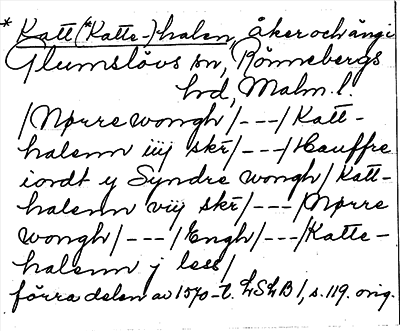 * Katt(*Katte-)halen, åker och äng i
Glumslövs sn, Rönnebergs
hd, Malm. l.
/Nørre wongh/---/Katt-
halenn iiij skr/---/Hauffre
iordt y Syndre wongh/Katt-
halenn viij skr/---/Nørre
wongh/---/Engh/---/Katte-
halenn j less/
förra delen av 1570-t. LSLB 1, s. 119. orig.